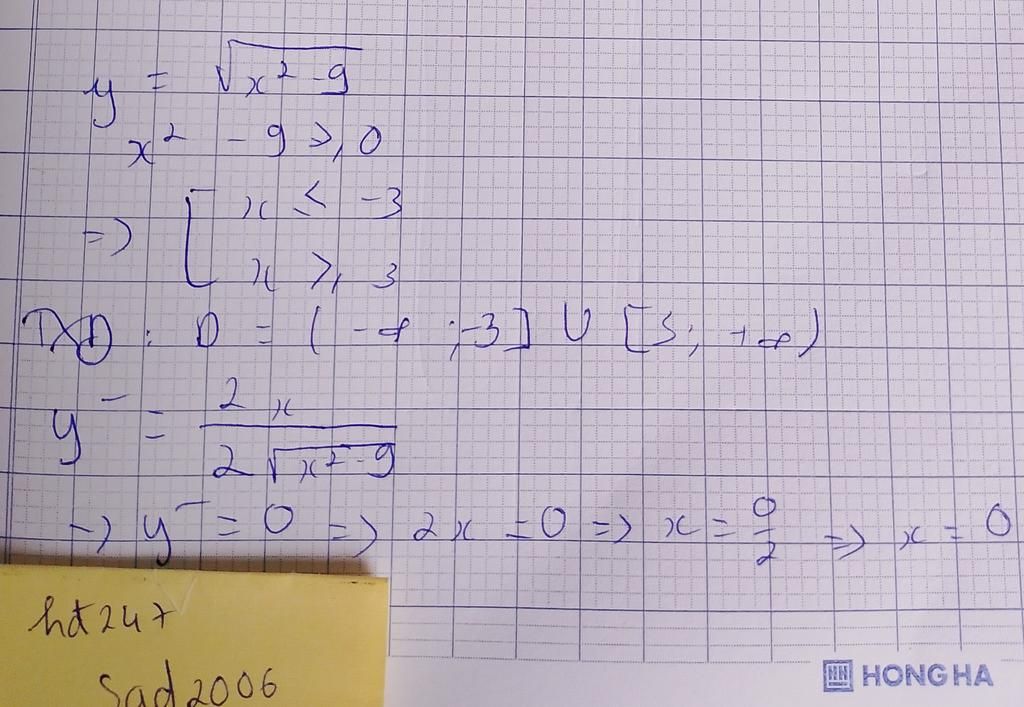 y = √(x² - 9)
x² - 9 ≥ 0
=> [ x ≤ -3
x ≥ 3
TXĐ : D = (-∞ ; -3] ∪ [3; +∞)
y' = 2x / 2√(x² - 9)
=> y' = 0 => 2x = 0 => x = 0/2 => x = 0
hdt247
Sad2006
HONG HA